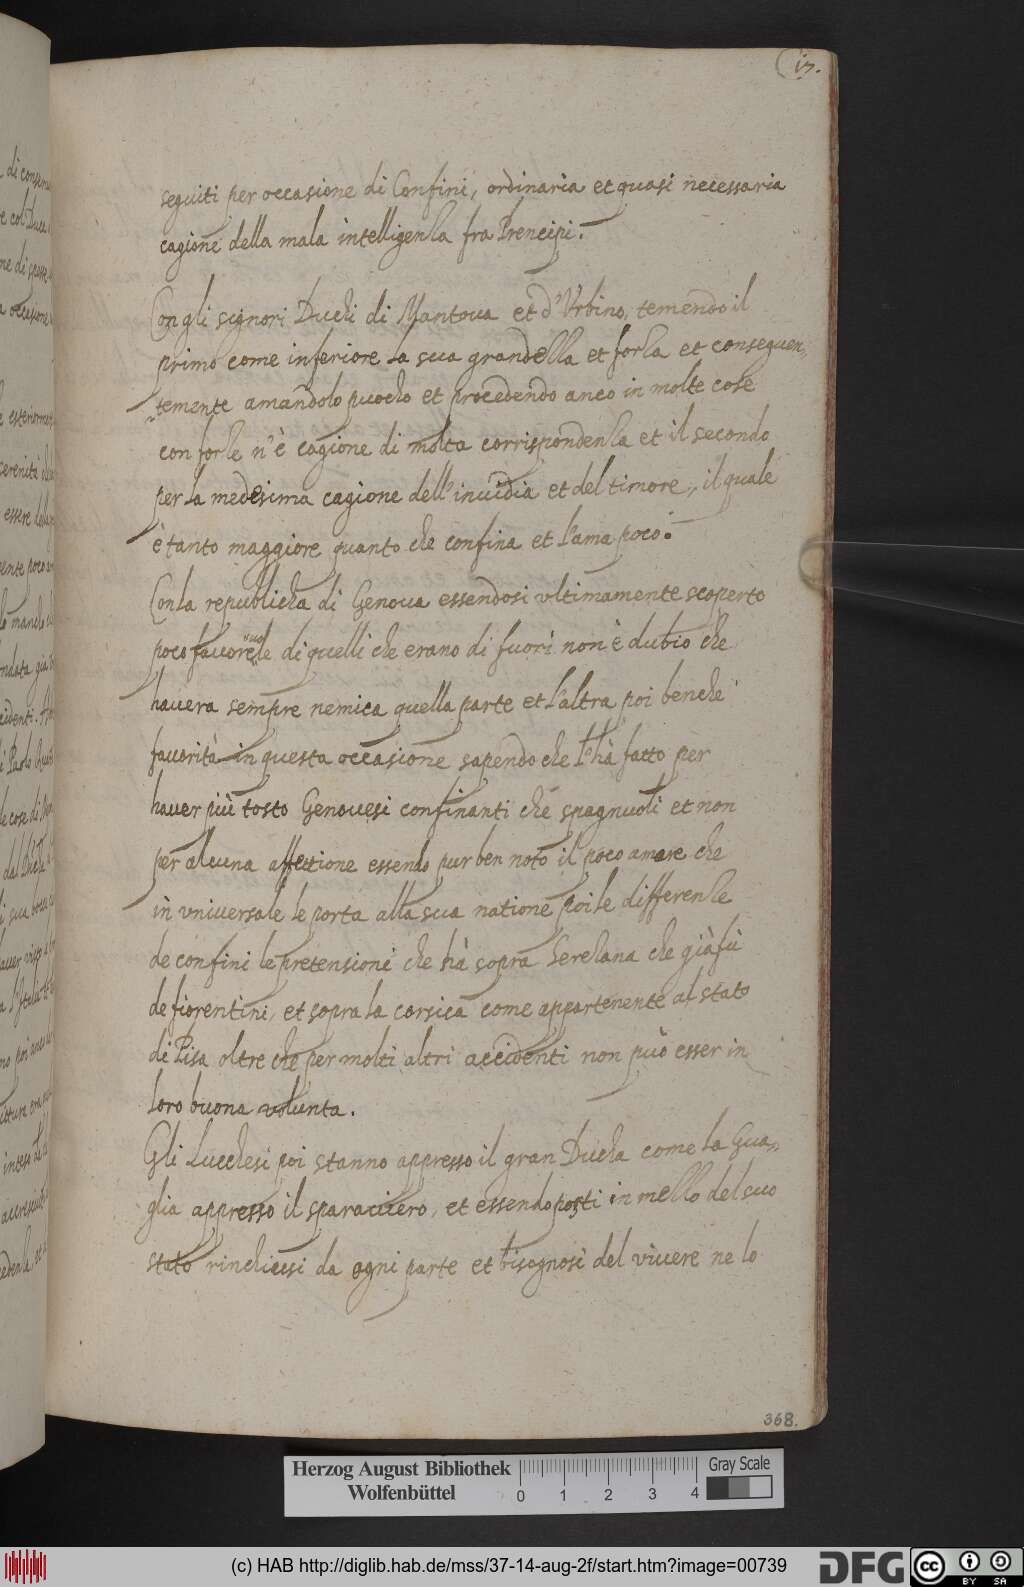 17.
seguiti per occasione di Confini, ordinaria et quasi necessaria
cagione della mala intelligenza fra Prencipi.
Con gli signori Duchi di Mantoua et d'Vrbino, temendo il
primo come inferiore la sua grandezza et forza et conseguen-
temente amandolo puocho et procedendo anco in molte cose
con forze n'è cagione di molta corrispondenza et il secondo
per la medesima cagione dell'inuidia et del timore, il quale
è tanto maggiore quanto che confina et l'ama poco.
Con la republicha di Genoua essendosi vltimamente scoperto
poco fauoreuole di quelli che erano di fuori non è dubio che
hauera sempre nemica quella parte et l'altra poi benche
fauorità in questa occasione sapendo che l'hà fatto per
hauer più tosto Genouesi confinanti che spagnuoli et non
per alcuna affettione essendo pur ben noto il poco amare che
in vniuersale le porta alla sua natione poi le differenze
de confini le pretensioni che hà sopra Serezana che già fù
de fiorentini, et sopra la corsica come appartenente al stato
di Pisa oltre che per molti altri accidenti non può esser in
loro buona volunta.
Gli Lucchesi poi stanno appresso il gran Ducha come la Qua-
glia appresso il sparauiero, et essendo posti in mezzo del suo
stato rinchiusi da ogni parte et bisognosi del viuere ne lo
368.
Herzog August Bibliothek
Wolfenbüttel
0 1 2 3 4
Gray Scale
(c) HAB http://diglib.hab.de/mss/37-14-aug-2f/start.htm?image=00739
DFG
cc BY SA